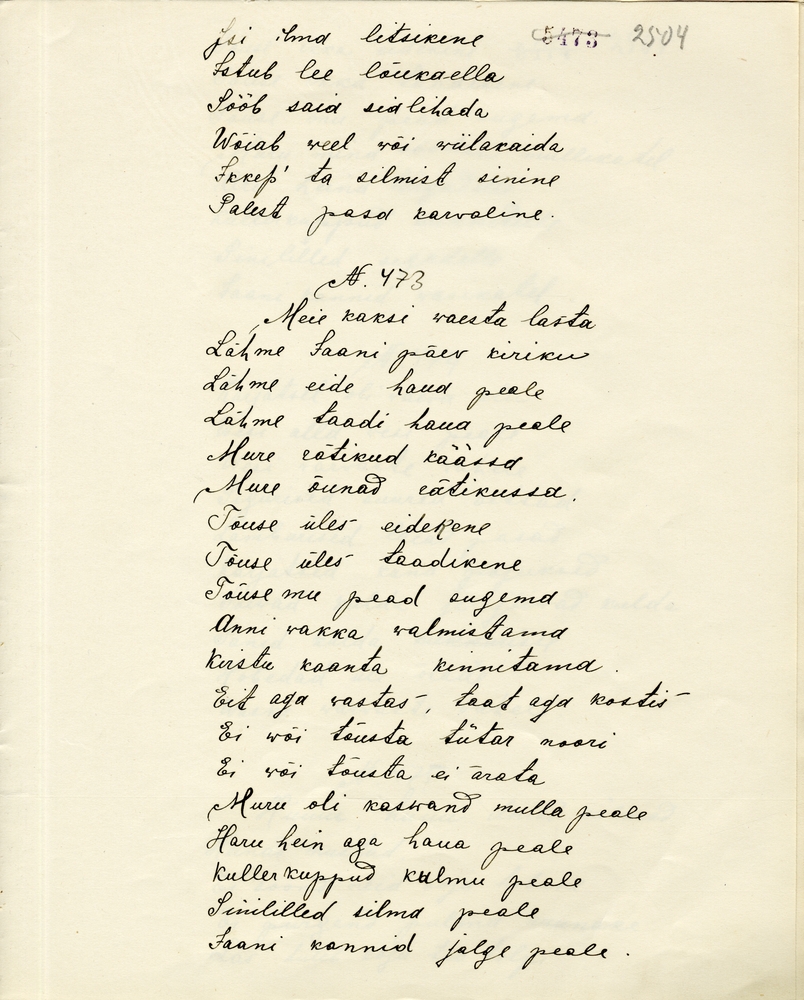 Isi ilma litsikene 5473 2504
Istub lee lõukaella
Sööb saia sialihada
Wõiab weel wõi wiilakaida
Ikkep' ta silmist sinine
Palest pasa karwaline.
N. 473
Meie kaksi waesta lasta
Lähme Jaani päev kiriku
Lähme eide haua peale
Lähme taadi haua peale
Mure rätikud käässa
Mure õunad rätikussa.
Tõuse üles eidekene
Tõuse üles taadikene
Tõuse mu pead sugema
Anni wakka walmistama
Kirstu kaanta kinnitama.
Eit aga wastas, taat aga kostis
Ei wõi tõusta tütar noori
Ei wõi tõusta ei ärata
Muru oli kaswand mulla peale
Haru hein aga haua peale
Kullerkuppud kulmu peale
Sinililled silma peale
Jaani kannid jalge peale.